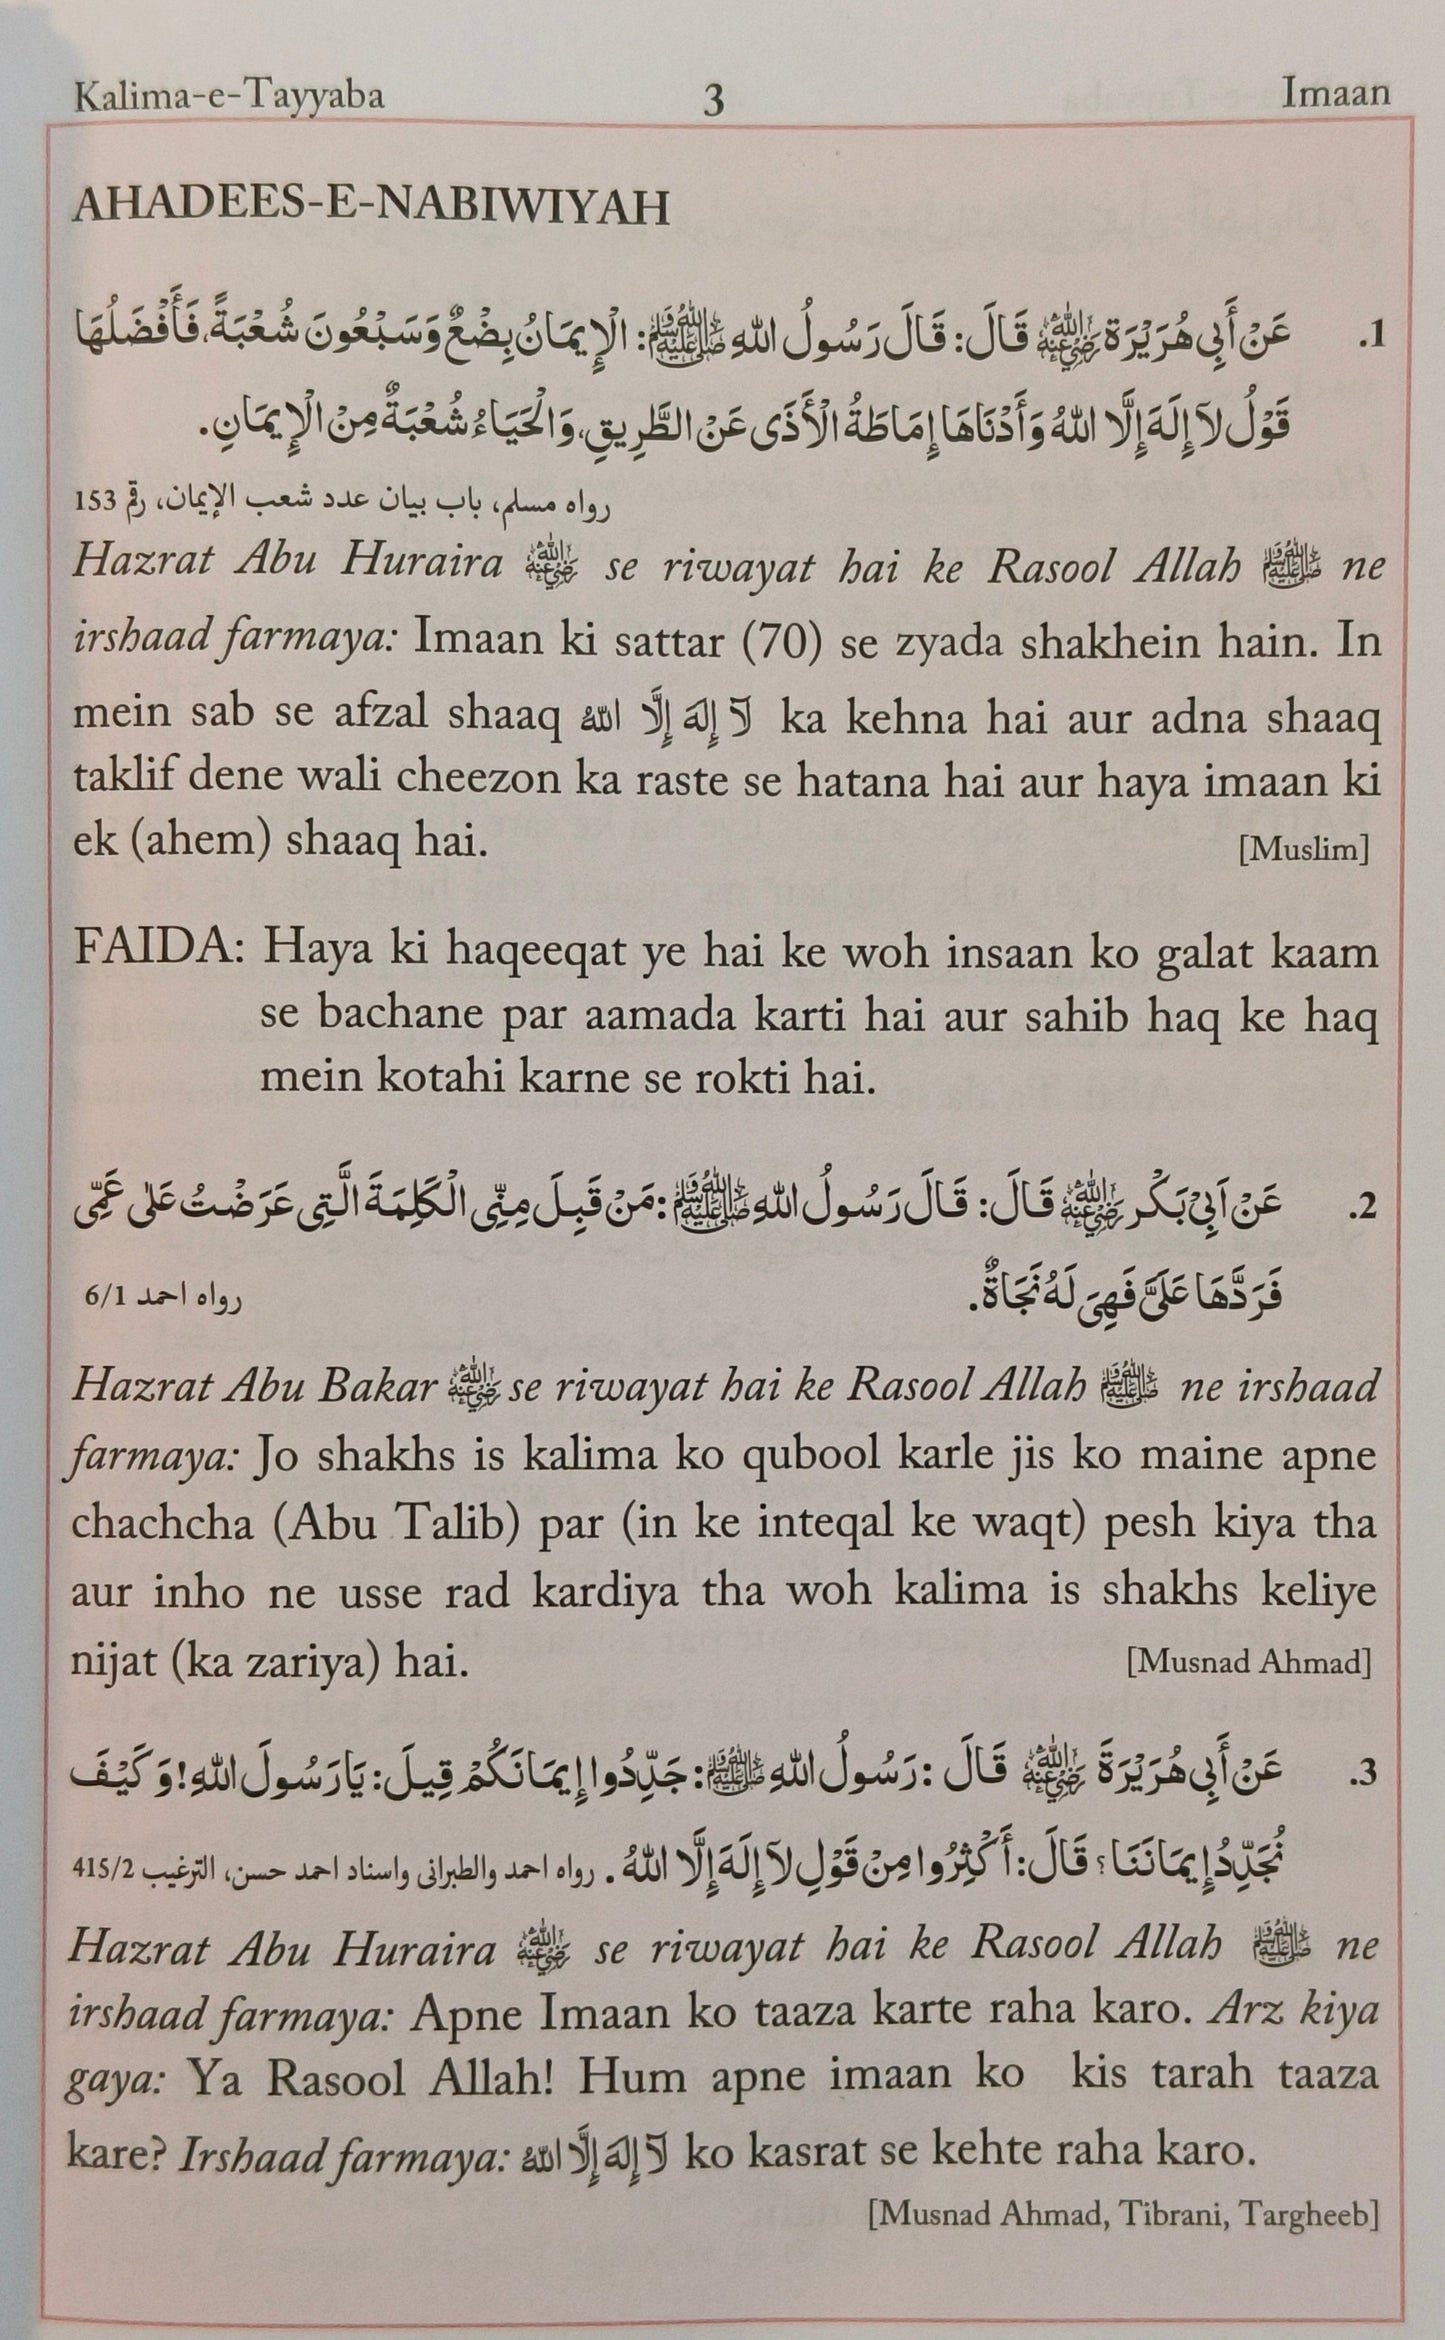 Kalima-e-Tayyaba 3 Imaan
AHADEES-E-NABIWIYAH
1. عَنْ أَبِي هُرَيْرَةَ رضي الله عنه قَالَ: قَالَ رَسُولُ اللهِ ﷺ: الْإِيمَانُ بِضْعٌ وَسَبْعُونَ شُعْبَةً، فَأَفْضَلُهَا
قَوْلُ لآ إِلَهَ إِلَّا اللهُ وَأَدْنَاهَا إِمَاطَةُ الْأَذَى عَنْ الطَّرِيقِ، وَالْحَيَاءُ شُعْبَةٌ مِنْ الْإِيمَانِ.
رواه مسلم، باب بيان عدد شعب الإيمان، رقم 153
Hazrat Abu Huraira رضي الله عنه se riwayat hai ke Rasool Allah ﷺ ne
irshaad farmaya: Imaan ki sattar (70) se zyada shakhein hain. In
mein sab se afzal shaaq لآ إِلهَ إِلَّا اللهُ ka kehna hai aur adna shaaq
taklif dene wali cheezon ka raste se hatana hai aur haya imaan ki
ek (ahem) shaaq hai. [Muslim]
FAIDA: Haya ki haqeeqat ye hai ke woh insaan ko galat kaam
se bachane par aamada karti hai aur sahib haq ke haq
mein kotahi karne se rokti hai.
2. عَنْ اَبِيْ بَكْرٍ رضي الله عنه قَالَ: قَالَ رَسُولُ اللهِ ﷺ: مَنْ قَبِلَ مِنِّي الْكَلِمَةَ الَّتِي عَرَضْتُ عَلٰى عَمِّي
فَرَدَّهَا عَلَيَّ فَهِيَ لَهُ نَجَاةٌ.
رواه احمد 6/1
Hazrat Abu Bakar رضي الله عنه se riwayat hai ke Rasool Allah ﷺ ne irshaad
farmaya: Jo shakhs is kalima ko qubool karle jis ko maine apne
chachcha (Abu Talib) par (in ke inteqal ke waqt) pesh kiya tha
aur inho ne usse rad kardiya tha woh kalima is shakhs keliye
nijat (ka zariya) hai. [Musnad Ahmad]
3. عَنْ أَبِي هُرَيْرَةَ رضي الله عنه قَالَ: رَسُولُ اللهِ ﷺ: جَدِّدُوا إِيمَانَكُمْ قِيلَ: يَا رَسُولَ اللهِ! وَكَيْفَ
نُجَدِّدُ إِيمَانَنَا؟ قَالَ: أَكْثِرُوا مِنْ قَوْلِ لآ إِلَهَ إِلَّا اللهُ. رواه احمد والطبرانى واسناد احمد حسن، الترغيب 415/2
Hazrat Abu Huraira رضي الله عنه se riwayat hai ke Rasool Allah ﷺ ne
irshaad farmaya: Apne Imaan ko taaza karte raha karo. Arz kiya
gaya: Ya Rasool Allah! Hum apne imaan ko kis tarah taaza
kare? Irshaad farmaya: لآ إِلهَ إِلَّا اللهُ ko kasrat se kehte raha karo.
[Musnad Ahmad, Tibrani, Targheeb]